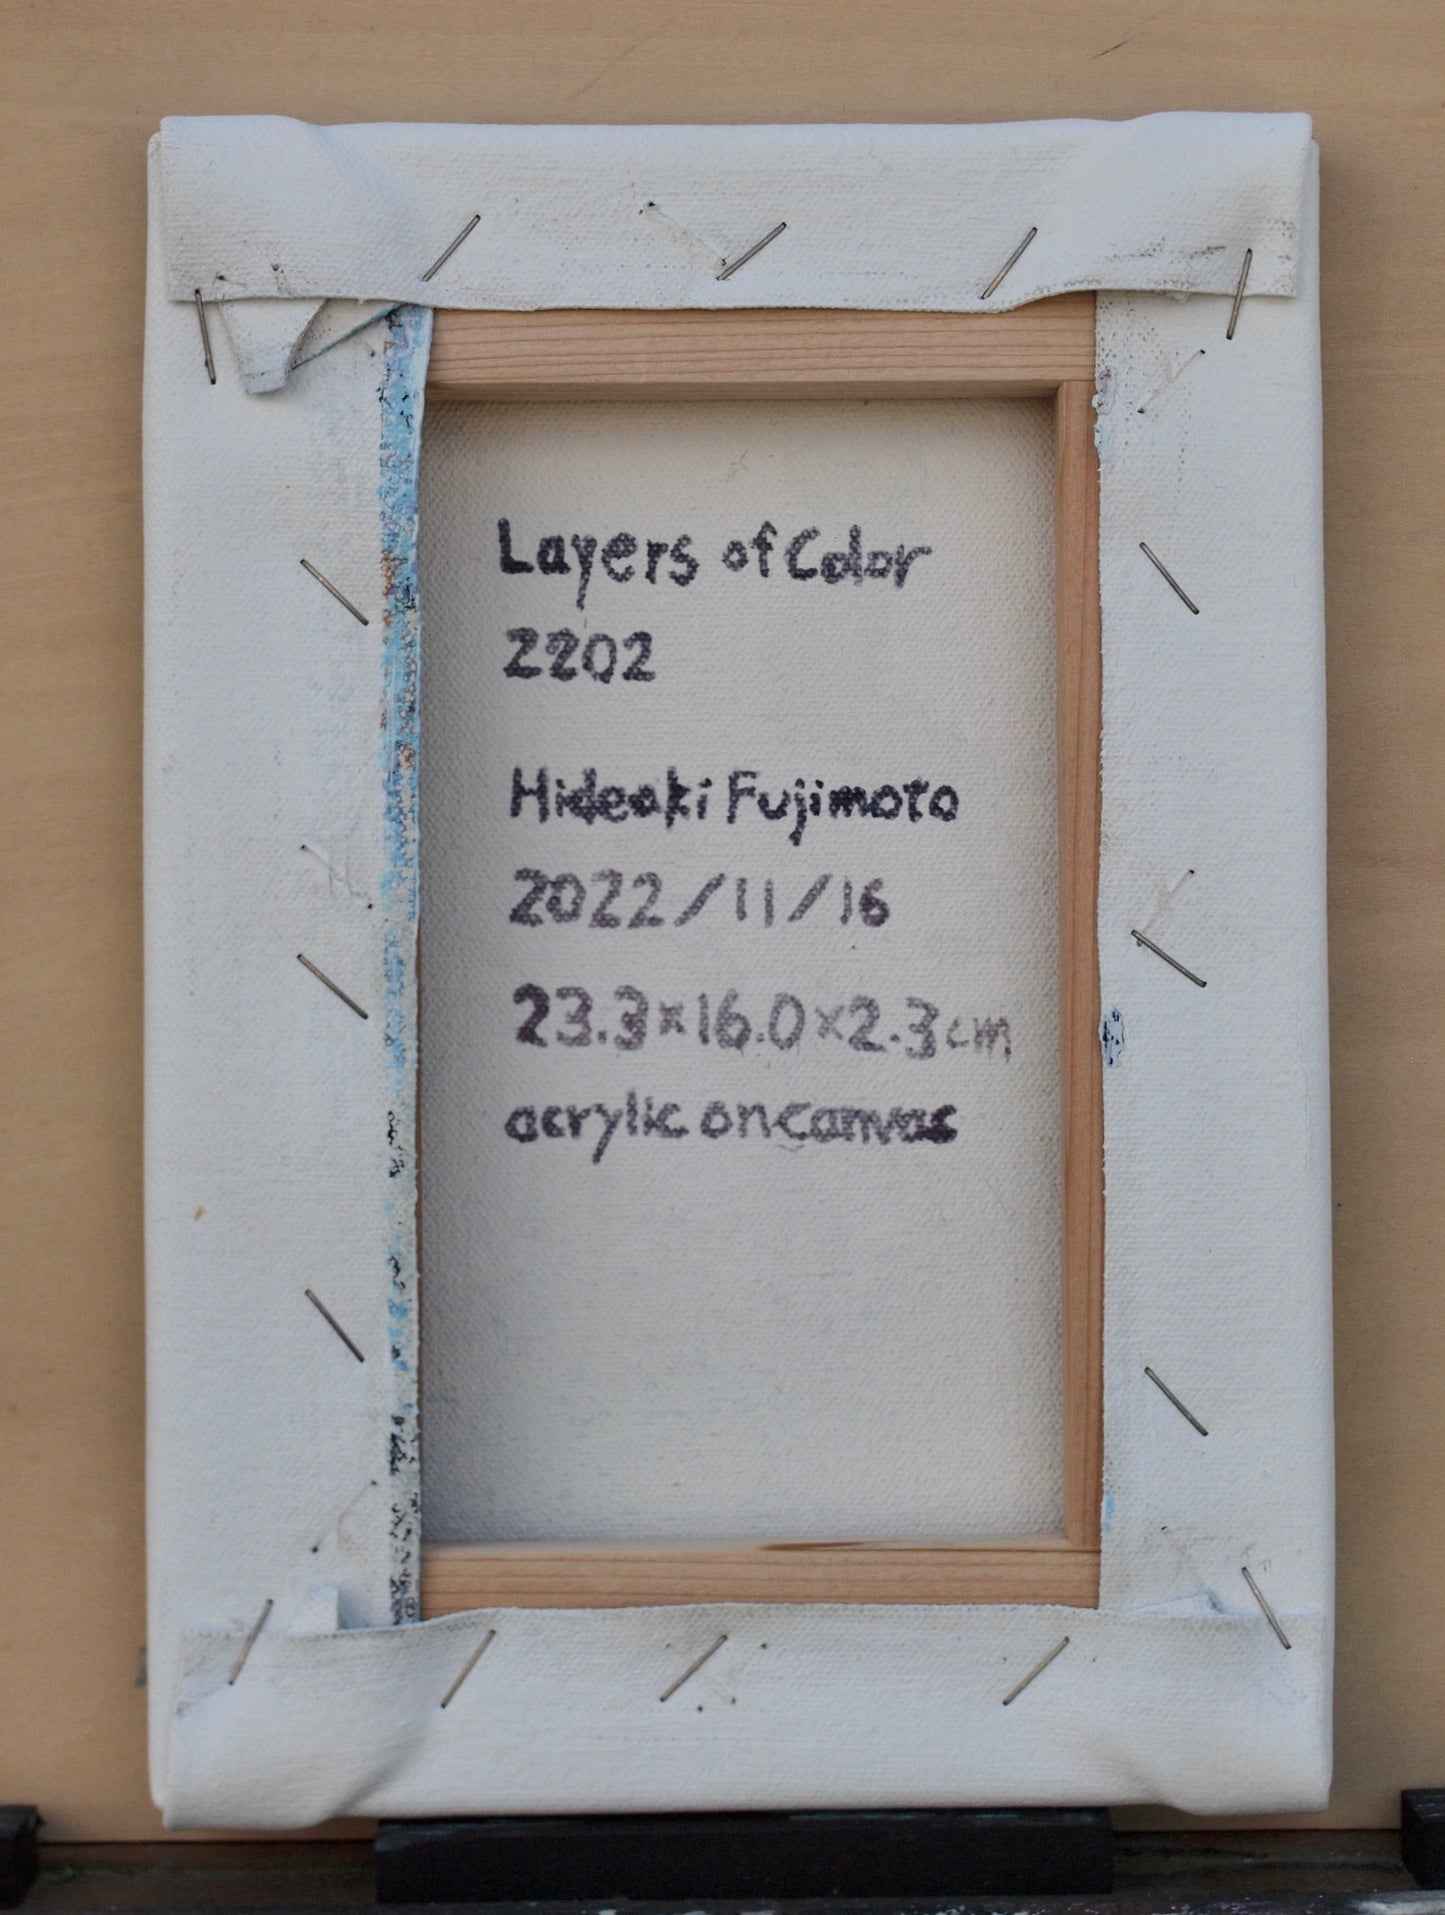 Layers of Color
2202
Hideaki Fujimoto
2022/11/16
23.3×16.0×2.3cm
acrylic on canvas